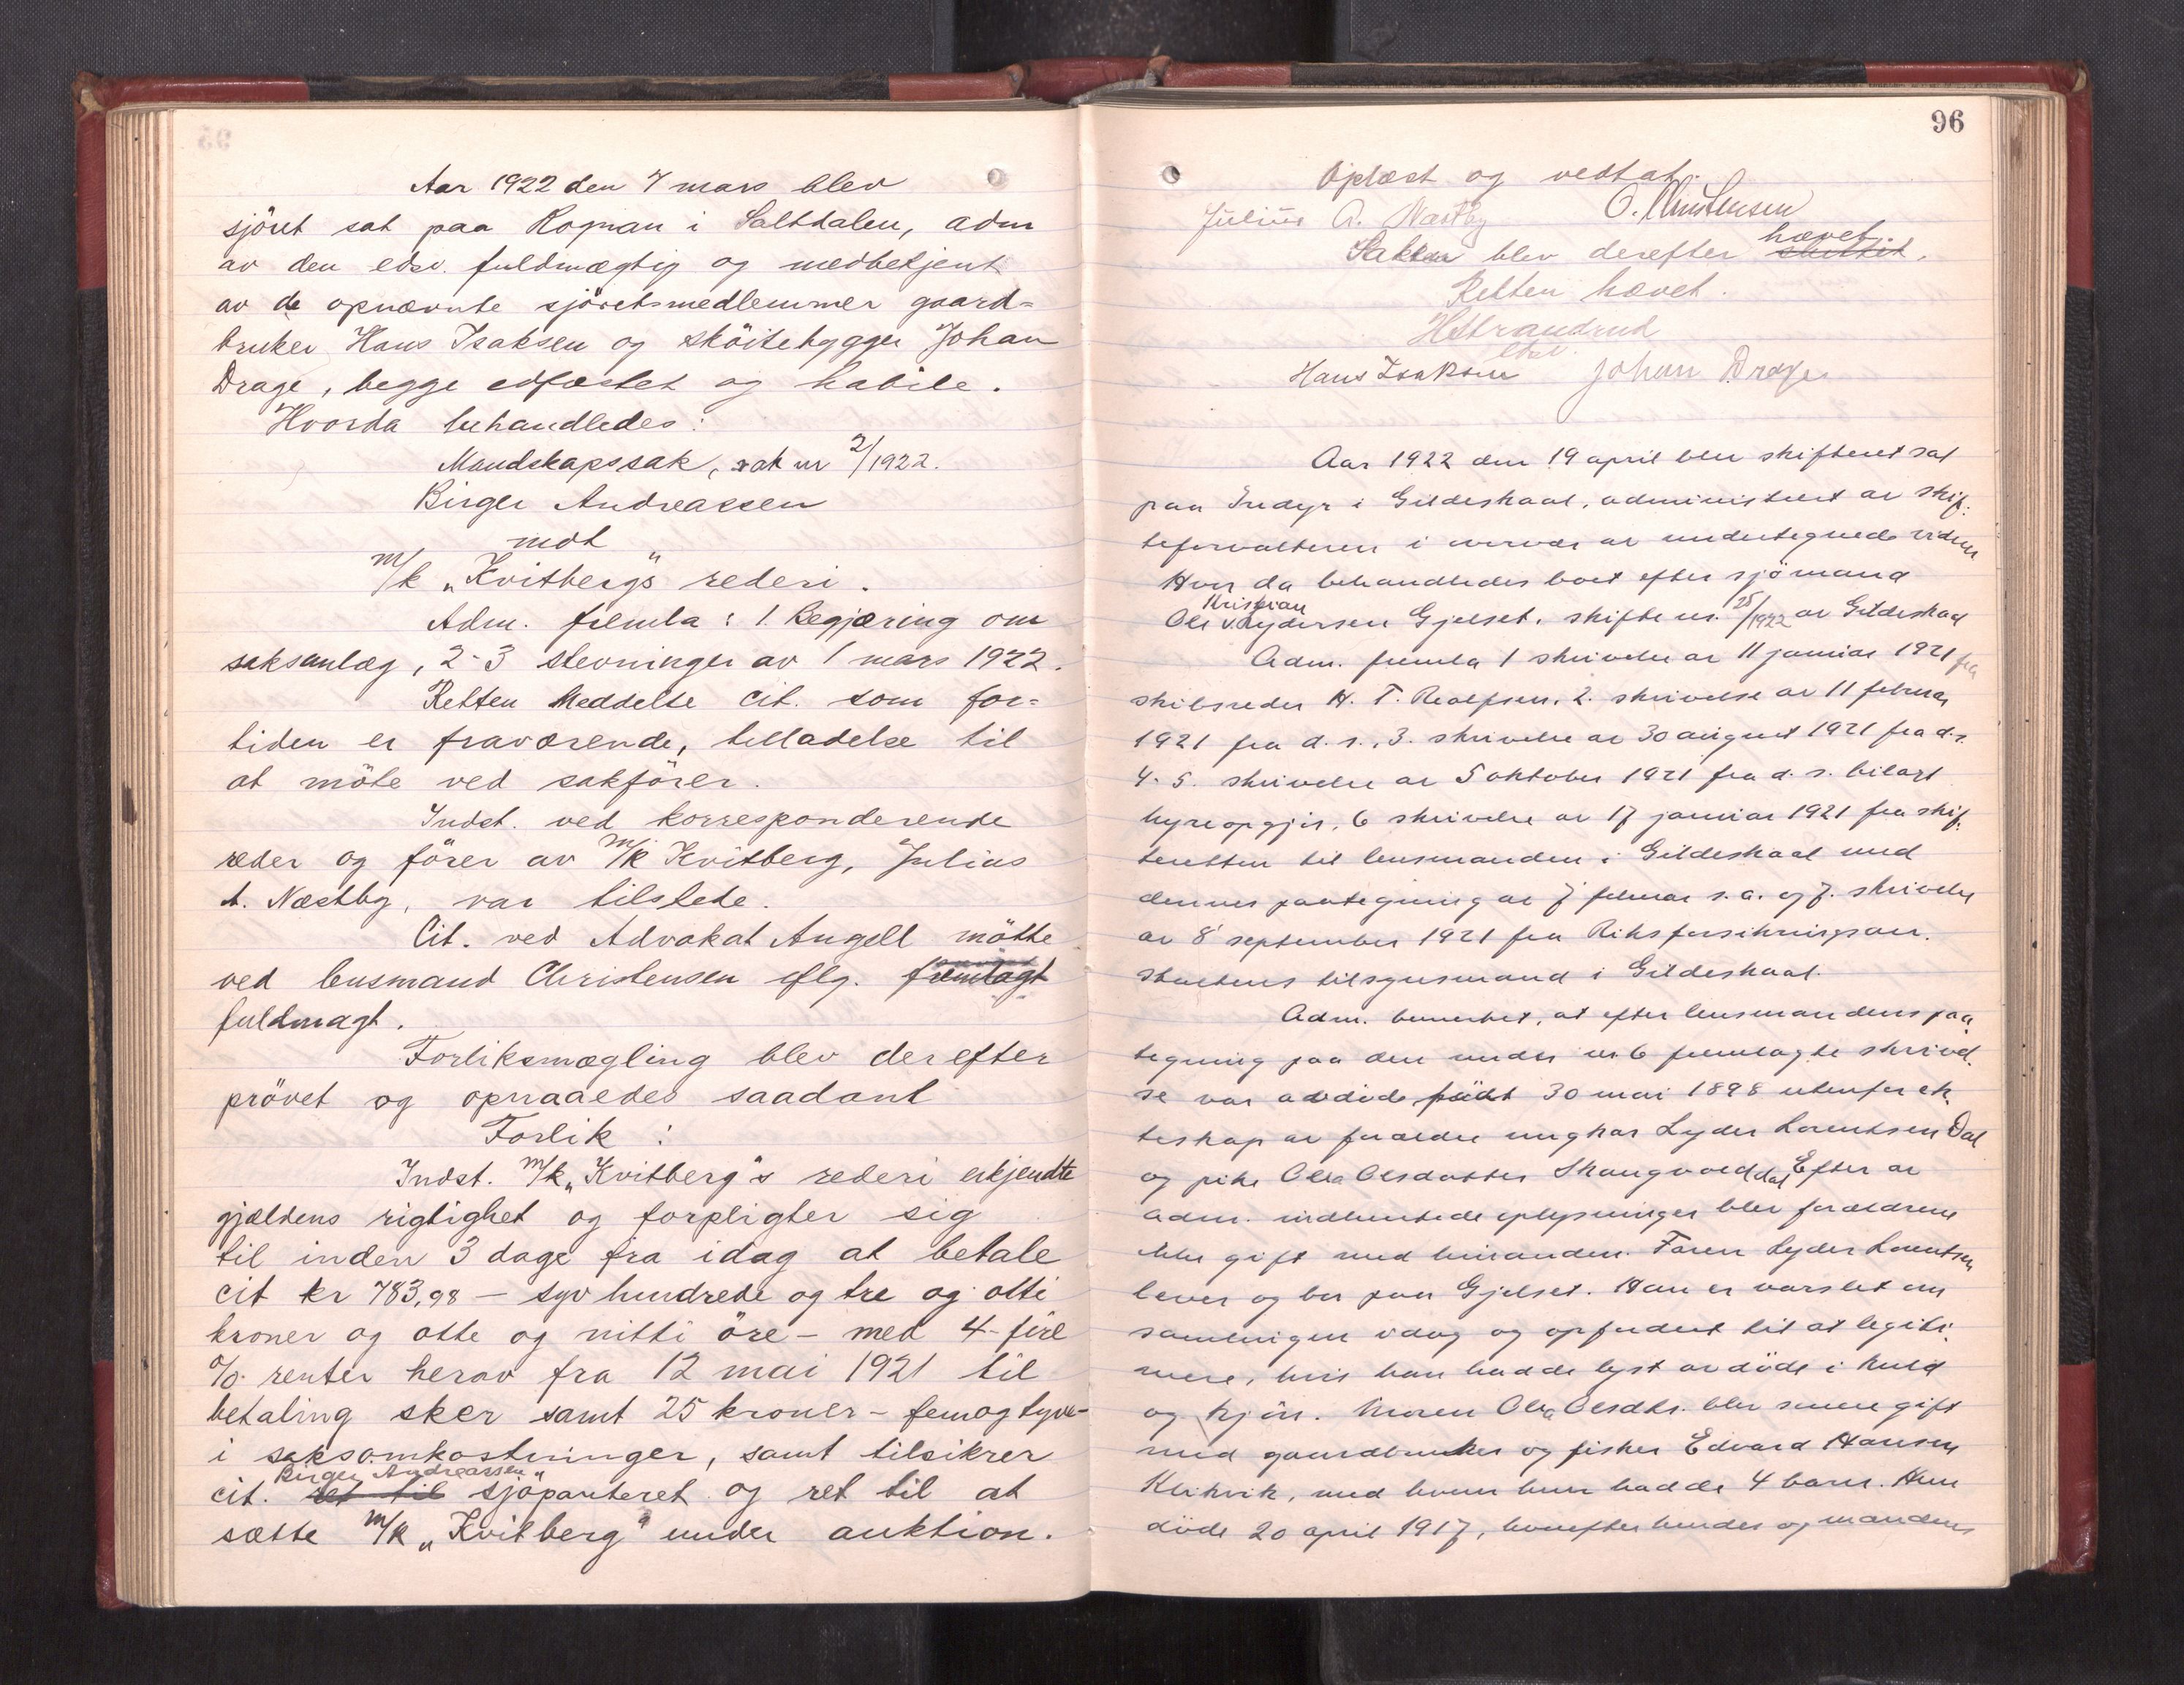 Aar 1922 den 7 mars blev
sjöret sat paa Rognan i Saltdalen, adm
av den edsv. fuldmægtig og medbetjent
av de opnævnte sjöretsmedlemmer gaard=
bruker Hans Isaksen og sköitebygger Johan
Drage, begge edfæstet og habile.
Hvorda behandledes:
Mandskapssak, sak nr 2/1922.
Birger Andreassen
mot
m/k „Kvitberg"s rederi.
Adm. fremla: 1. Begjæring om
saksanlæg, 2-3 stevninger av 1 mars 1922.
Retten meddelte cit. som for=
tiden er fraværende, tilladelse til
at möte ved sakförer.
Indst. ved korresponderende
reder og förer av m/k Kvitberg, Julius
A. Næstby, var tilstede.
Cit. ved Advokat Angell mötte
ved lensmand Christensen iflg. fremlagt
fuldmagt.
Forliksmægling blev derefter
prövet og opnaaedes saadant
Forlik:
Indst. m/k „Kvitberg"s rederi erkjendte
gjældens rigtighet og forpligter sig
til inden 3 dage fra idag at betale
cit kr 783,98 – syv hundrede og tre og otti
kroner og otte og nitti öre – med 4 – fire
% renter herav fra 12 mai 1921 til
betaling sker samt 25 kroner – femogtyve –
i saksomkostninger, samt tilsikrer
Birger Andreassen
cit. ret til sjöpanteret og ret til at
sætte m/k „Kvitberg" under auktion.
96
Oplæst og vedtat.
Julius A. Næstby O. Christensen
hævet.
Sakken blev derefter sluttet.
Retten hævet.
H Strandrud
edsv.
Hans Isaksen Johan Drage
Aar 1922 den 19 april blev skifteret sat
paa Indyr i Gildeskaal, administrert av skif-
teforvalteren i nærvær av undertegnede vidner
Hvor da behandledes boet efter sjömand
Kristian
Ole Lydersen Gjelset, skifte nr. 25/1922 av Gildeskaal
Adm. fremla 1 skrivelse av 11 januar 1921 fra
skibsreder H. T. Realfsen, 2. skrivelse av 11 februar
1921 fra d.s., 3. skrivelse av 30 august 1921 fra d.s.
4-5. skrivelse av 5 oktober 1921 fra d.s. bilagt
hyreopgjör, 6 skrivelse av 17 januar 1921 fra skif-
teretten til lensmanden i Gildeskaal med
dennes paategning av 7 februar s.a. og 7. skrivelse
av 8 september 1921 fra Riksforsikringsan-
staltens tilsynsmand i Gildeskaal.
Adm. bemerket, at efter lensmandens paa-
tegning paa den under nr 6 fremlagte skrivel-
se var avdöde födt 30 mai 1898 utenfor ek-
teskap av forældre ungkar Lyder Lorentsen Dal
og pike Olea Olsdatter Skaugvolddal. Efter av
adm. indhentede oplysninger blev forældrene
ikke gift med hinanden. Faren Lyder Lorentsen
lever og bor paa Gjelset. Han er varslet om
samlingen idag og opfordret til at legiti-
mere, hvis han hadde lyst avdöde i kuld
og kjön. Moren Olea Olsdtr. blev senere gift
med gaardbruker og fisker Edvard Hansen
Klikvik, med hvem hun hadde 4 barn. Hun
döde 20 april 1917, hvorefter hendes og mandens